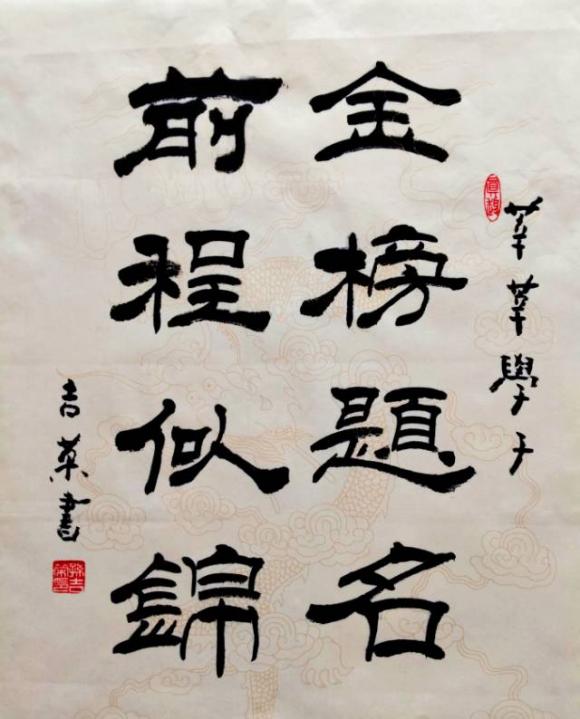 莘莘學子
金榜題名
前程似錦
吉英書